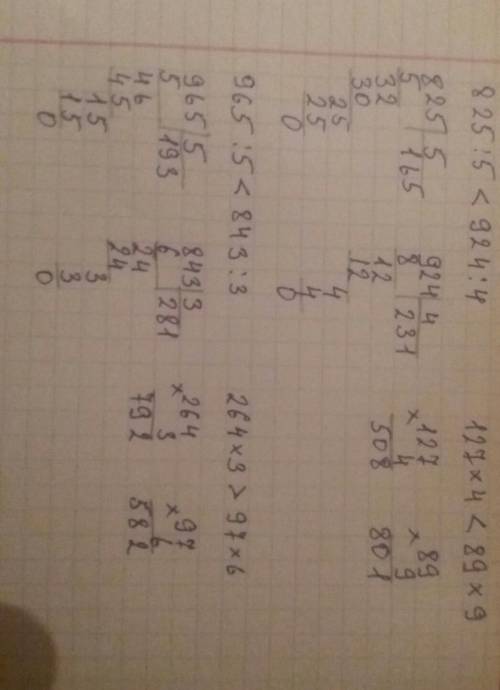 825:5 < 924:4 127×4 < 89×9
825 5 924 4 ×127 ×89
5 165 8 231 4 9
32 12 508 801
30 12
25 4
25 4
0 0
965:5 < 843:3 264×3 > 97×6
965 5 843 3 ×264 ×97
5 193 6 281 3 6
46 24 792 582
45 24
15 3
15 3
0 0